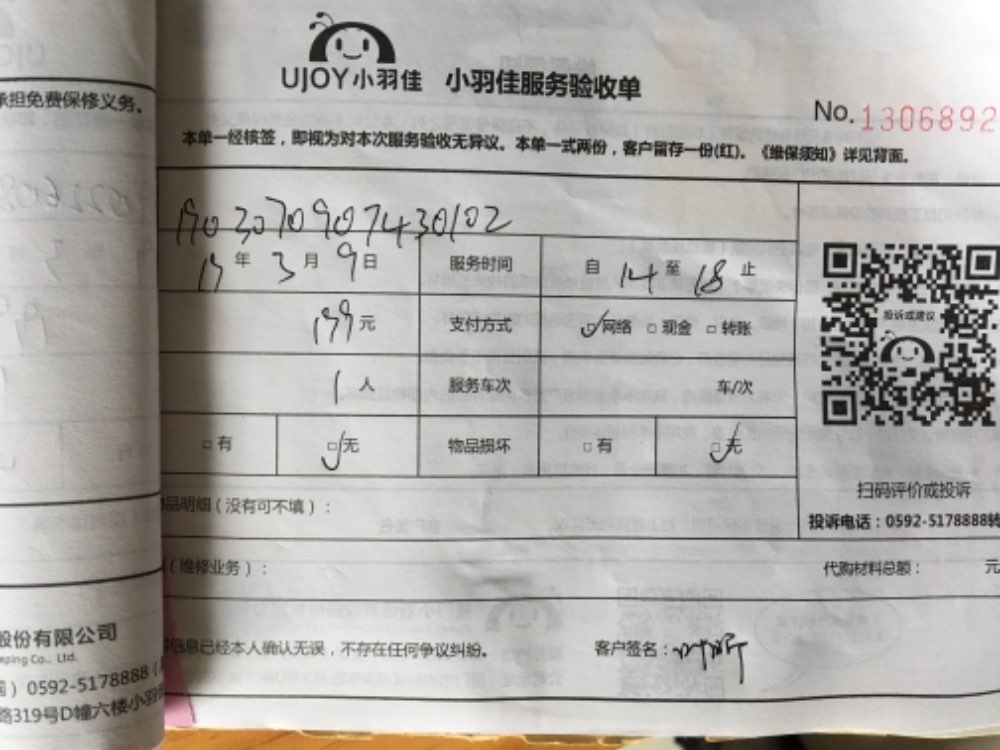 UJOY小羽佳 小羽佳服务验收单
No. 1306892
本单一经核签，即视为对本次服务验收无异议。本单一式两份，客户留存一份(红)。《维保须知》详见背面。
19030709074430102
19年3月9日 服务时间 自14至18止
199元 支付方式 ☑网络 □现金 □转账
1人 服务车次 车/次
□有 ☑无 物品损坏 □有 ☑无
投诉或建议
扫码评价或投诉
投诉电话：0592-5178888转
品明细（没有可不填）：
（维修业务）： 代购材料总额： 元
信息已经本人确认无误，不存在任何争议纠纷。 客户签名：
承担免费保修义务。
股份有限公司
eping Co., Ltd.
0592-5178888
路319号D幢六楼小羽